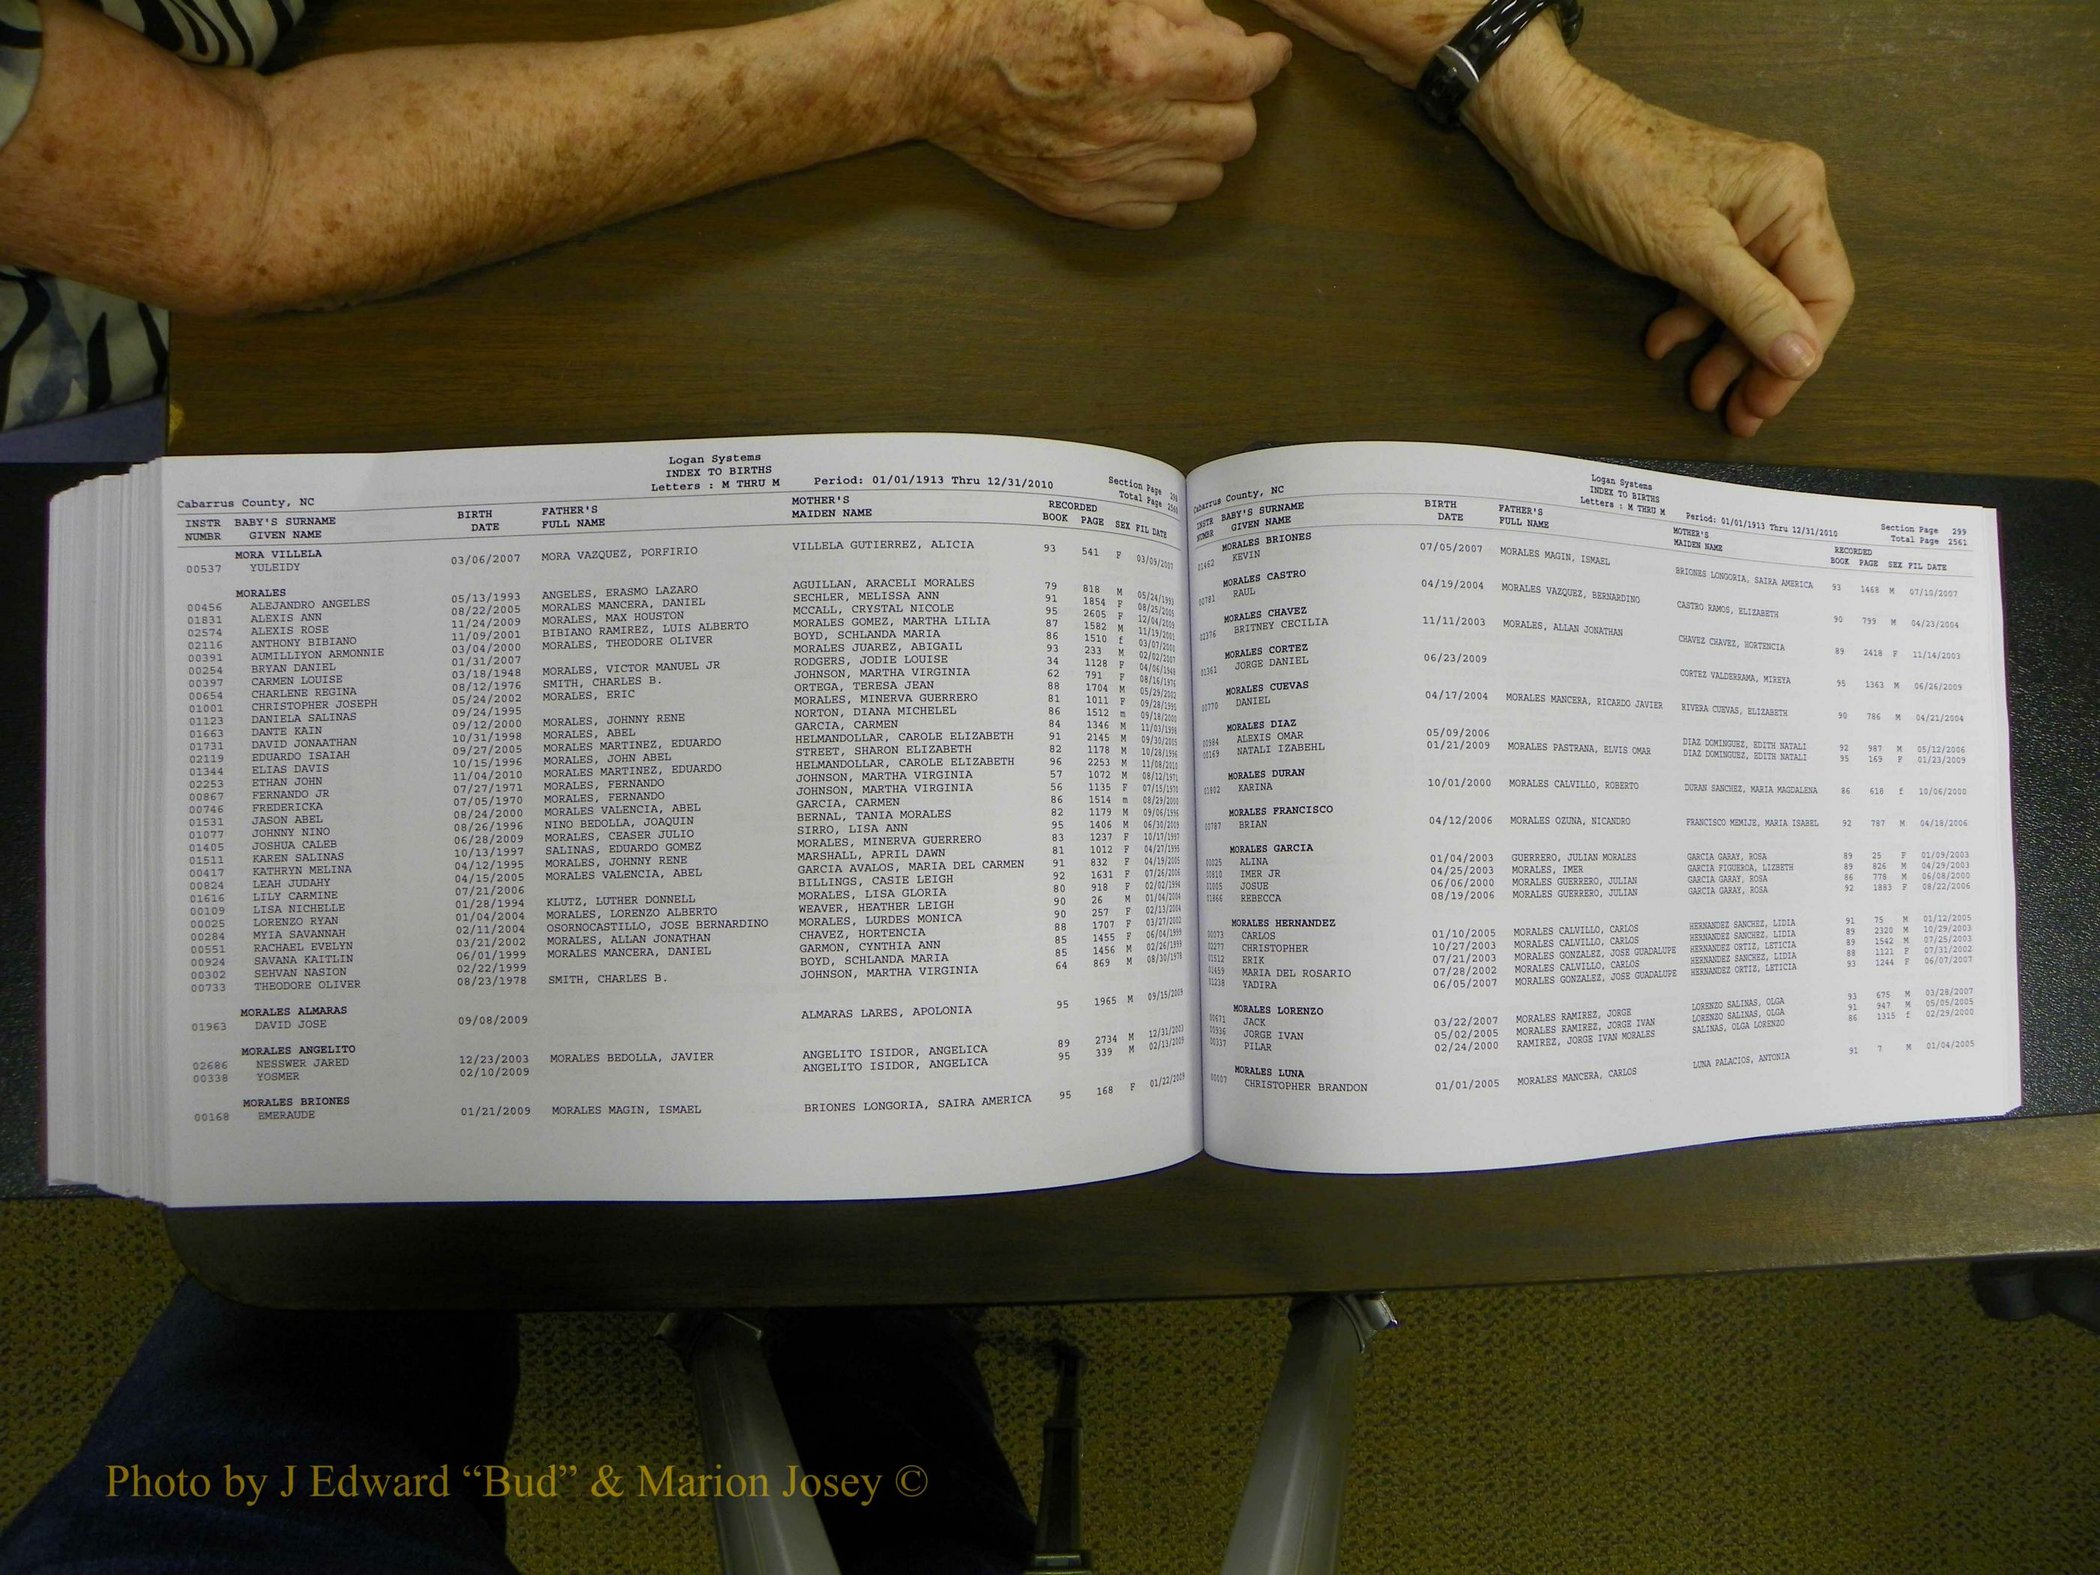 Logan Systems
INDEX TO BIRTHS
Letters : M THRU M Period: 01/01/1913 Thru 12/31/2010
Cabarrus County, NC Section Page 298
Total Page 2560
INSTR BABY'S SURNAME BIRTH FATHER'S MOTHER'S RECORDED
NUMBR GIVEN NAME DATE FULL NAME MAIDEN NAME BOOK PAGE SEX FIL DATE
MORA VILLELA
00537 YULEIDY 03/06/2007 MORA VAZQUEZ, PORFIRIO VILLELA GUTIERREZ, ALICIA 93 541 F 03/09/2007
MORALES
00456 ALEJANDRO ANGELES 05/13/1993 ANGELES, ERASMO LAZARO AGUILLAN, ARACELI MORALES 79 818 M 05/24/1993
01831 ALEXIS ANN 08/22/2005 MORALES MANCERA, DANIEL SECHLER, MELISSA ANN 91 1854 F 08/25/2005
02574 ALEXIS ROSE 11/24/2009 MORALES, MAX HOUSTON MCCALL, CRYSTAL NICOLE 95 2605 F 12/04/2009
02116 ANTHONY BIBIANO 11/09/2001 BIBIANO RAMIREZ, LUIS ALBERTO MORALES GOMEZ, MARTHA LILIA 87 1582 M 11/19/2001
00391 AUMILLIYON ARMONNIE 03/04/2000 MORALES, THEODORE OLIVER BOYD, SCHLANDA MARIA 86 1510 f 03/07/2000
00254 BRYAN DANIEL 01/31/2007 MORALES JUAREZ, ABIGAIL 93 233 M 02/02/2007
00397 CARMEN LOUISE 03/18/1948 MORALES, VICTOR MANUEL JR RODGERS, JODIE LOUISE 34 1128 F 04/06/1948
00654 CHARLENE REGINA 08/12/1976 SMITH, CHARLES B. JOHNSON, MARTHA VIRGINIA 62 791 F 08/16/1976
01001 CHRISTOPHER JOSEPH 05/24/2002 MORALES, ERIC ORTEGA, TERESA JEAN 88 1704 M 05/29/2002
01123 DANIELA SALINAS 09/24/1995 MORALES, MINERVA GUERRERO 81 1011 F 09/28/1995
01663 DANTE KAIN 09/12/2000 MORALES, JOHNNY RENE NORTON, DIANA MICHELEL 86 1512 m 09/18/2000
01731 DAVID JONAATHAN 10/31/1998 MORALES, ABEL GARCIA, CARMEN 84 1346 M 11/03/1998
02119 EDUARDO ISAIAH 09/27/2005 MORALES MARTINEZ, EDUARDO HELMANDOLLAR, CAROLE ELIZABETH 91 2145 M 09/30/2005
01344 ELIAS DAVIS 10/15/1996 MORALES, JOHN ABEL STREET, SHARON ELIZABETH 82 1178 M 10/28/1996
02253 ETHAN JOHN 11/04/2010 MORALES MARTINEZ, EDUARDO HELMANDOLLAR, CAROLE ELIZABETH 96 2253 M 11/08/2010
00867 FERNANDO JR 07/27/1971 MORALES, FERNANDO JOHNSON, MARTHA VIRGINIA 57 1072 M 08/12/1971
00746 FREDERICKA 07/05/1970 MORALES, FERNANDO JOHNSON, MARTHA VIRGINIA 56 1135 F 07/15/1970
01531 JASON ABEL 08/24/2000 MORALES VALENCIA, ABEL GARCIA, CARMEN 86 1514 m 08/29/2000
01077 JOHNNY NINO 08/26/1996 NINO BEDOLLA, JOAQUIN BERNAL, TANIA MORALES 82 1179 M 09/06/1996
01405 JOSHUA CALEB 06/28/2009 MORALES, CEASER JULIO SIRRO, LISA ANN 95 1406 M 06/30/2009
01511 KAREN SALINAS 10/13/1997 SALINAS, EDUARDO GOMEZ MORALES, MINERVA GUERRERO 83 1237 F 10/17/1997
00417 KATHRYN MELINA 04/12/1995 MORALES, JOHNNY RENE MARSHALL, APRIL DAWN 81 1012 F 04/27/1995
00824 LEAH JUDAHY 04/15/2005 MORALES VALENCIA, ABEL GARCIA AVALOS, MARIA DEL CARMEN 91 832 F 04/19/2005
01616 LILY CARMINE 07/21/2006 BILLINGS, CASIE LEIGH 92 1631 F 07/26/2006
00109 LISA NICHELLE 01/28/1994 KLUTZ, LUTHER DONNELL MORALES, LISA GLORIA 80 918 F 02/02/1994
00025 LORENZO RYAN 01/04/2004 MORALES, LORENZO ALBERTO WEAVER, HEATHER LEIGH 90 26 M 01/04/2004
00284 MYIA SAVANNAH 02/11/2004 OSORNOCASTILLO, JOSE BERNARDINO MORALES, LURDES MONICA 90 257 F 02/13/2004
00551 RACHAEL EVELYN 03/21/2002 MORALES, ALLAN JONATHAN CHAVEZ, HORTENCIA 88 1707 F 03/27/2002
00924 SAVANA KAITLIN 06/01/1999 MORALES MANCERA, DANIEL GARMON, CYNTHIA ANN 85 1455 F 06/04/1999
00302 SEHVAN NASION 02/22/1999 BOYD, SCHLANDA MARIA 85 1456 M 02/26/1999
00733 THEODORE OLIVER 08/23/1978 SMITH, CHARLES B. JOHNSON, MARTHA VIRGINIA 64 869 M 08/30/1978
MORALES ALMARAS
01963 DAVID JOSE 09/08/2009 ALMARAS LARES, APOLONIA 95 1965 M 09/15/2009
MORALES ANGELITO
02686 NESSWER JARED 12/23/2003 MORALES BEDOLLA, JAVIER ANGELITO ISIDOR, ANGELICA 89 2734 M 12/31/2003
00338 YOSMER 02/10/2009 ANGELITO ISIDOR, ANGELICA 95 339 M 02/13/2009
MORALES BRIONES
00168 EMERAUDE 01/21/2009 MORALES MAGIN, ISMAEL BRIONES LONGORIA, SAIRA AMERICA 95 168 F 01/22/2009
Logan Systems
INDEX TO BIRTHS
Letters : M THRU M Period: 01/01/1913 Thru 12/31/2010
Cabarrus County, NC Section Page 299
Total Page 2561
INSTR BABY'S SURNAME BIRTH FATHER'S MOTHER'S RECORDED
NUMBR GIVEN NAME DATE FULL NAME MAIDEN NAME BOOK PAGE SEX FIL DATE
MORALES BRIONES
01462 KEVIN 07/05/2007 MORALES MAGIN, ISMAEL BRIONES LONGORIA, SAIRA AMERICA 93 1468 M 07/10/2007
MORALES CASTRO
00781 RAUL 04/19/2004 MORALES VAZQUEZ, BERNARDINO CASTRO RAMOS, ELIZABETH 90 799 M 04/23/2004
MORALES CHAVEZ
02376 BRITNEY CECILIA 11/11/2003 MORALES, ALLAN JONATHAN CHAVEZ CHAVEZ, HORTENCIA 89 2418 F 11/14/2003
MORALES CORTEZ
01361 JORGE DANIEL 06/23/2009 CORTEZ VALDERRAMA, MIREYA 95 1363 M 06/26/2009
MORALES CUEVAS
00770 DANIEL 04/17/2004 MORALES MANCERA, RICARDO JAVIER RIVERA CUEVAS, ELIZABETH 90 786 M 04/21/2004
MORALES DIAZ
00984 ALEXIS OMAR 05/09/2006 DIAZ DOMINGUEZ, EDITH NATALI 92 987 M 05/12/2006
00169 NATALI IZABEHL 01/21/2009 MORALES PASTRANA, ELVIS OMAR DIAZ DOMINGUEZ, EDITH NATALI 95 169 F 01/23/2009
MORALES DURAN
01802 KARINA 10/01/2000 MORALES CALVILLO, ROBERTO DURAN SANCHEZ, MARIA MAGDALENA 86 618 f 10/06/2000
MORALES FRANCISCO
00787 BRIAN 04/12/2006 MORALES OZUNA, NICANDRO FRANCISCO MEMIJE, MARIA ISABEL 92 787 M 04/18/2006
MORALES GARCIA
00025 ALINA 01/04/2003 GUERRERO, JULIAN MORALES GARCIA GARAY, ROSA 89 25 F 01/09/2003
00810 IMER JR 04/25/2003 MORALES, IMER GARCIA FIGUEROA, LIZBETH 89 826 M 04/29/2003
01005 JOSUE 06/06/2000 MORALES GUERRERO, JULIAN GARCIA GARAY, ROSA 86 778 M 06/08/2000
01866 REBECCA 08/19/2006 MORALES GUERRERO, JULIAN GARCIA GARAY, ROSA 92 1883 F 08/22/2006
MORALES HERNANDEZ
00073 CARLOS 01/10/2005 MORALES CALVILLO, CARLOS HERNANDEZ SANCHEZ, LIDIA 91 75 M 01/12/2005
02277 CHRISTOPHER 10/27/2003 MORALES CALVILLO, CARLOS HERNANDEZ SANCHEZ, LIDIA 89 2320 M 10/29/2003
01512 ERIK 07/21/2003 MORALES GONZALEZ, JOSE GUADALUPE HERNANDEZ ORTIZ, LETICIA 89 1542 M 07/25/2003
01459 MARIA DEL ROSARIO 07/28/2002 MORALES CALVILLO, CARLOS HERNANDEZ SANCHEZ, LIDIA 88 1121 F 07/31/2002
01238 YADIRA 06/05/2007 MORALES GONZALEZ, JOSE GUADALUPE HERNANDEZ ORTIZ, LETICIA 93 1244 F 06/07/2007
MORALES LORENZO
00671 JACK 03/22/2007 MORALES RAMIREZ, JORGE LORENZO SALINAS, OLGA 93 675 M 03/28/2007
00936 JORGE IVAN 05/02/2005 MORALES RAMIREZ, JORGE IVAN LORENZO SALINAS, OLGA 91 947 M 05/05/2005
00337 PILAR 02/24/2000 RAMIREZ, JORGE IVAN MORALES SALINAS, OLGA LORENZO 86 1315 f 02/29/2000
MORALES LUNA
00007 CHRISTOPHER BRANDON 01/01/2005 MORALES MANCERA, CARLOS LUNA PALACIOS, ANTONIA 91 7 M 01/04/2005
Photo by J Edward “Bud” & Marion Josey ©